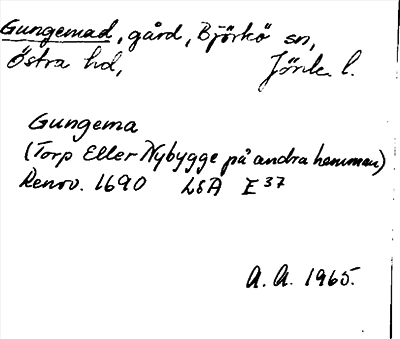 Gungemad, gård, Björkö sn,
Östra hd, Jönk. l.
Gungema
(Torp Eller Nybygge på andra hemman)
Renov. 1690 LSA E 37
A. A. 1965.